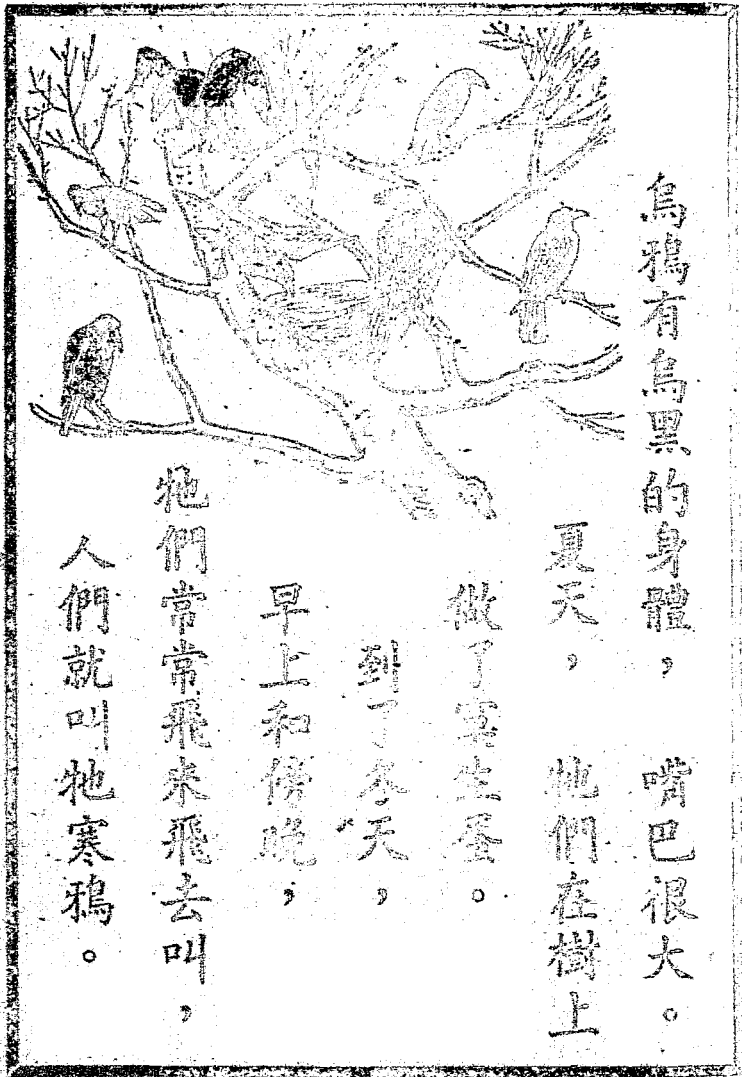 烏鴉有烏黑的身體，嘴巴很大。
夏天，牠們在樹上
做了窠生蛋。
到了冬天，
早上和傍晚，
牠們常常飛來飛去叫，
人們就叫牠寒鴉。